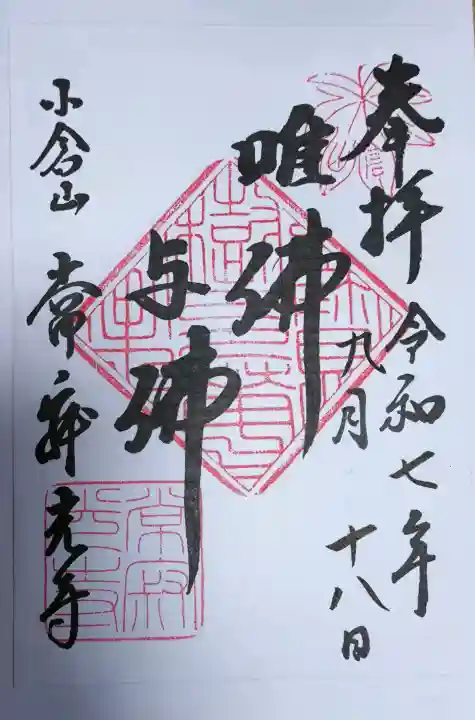 奉拝 令和七年
九月十八日
唯佛
与佛
小倉山 常寂光寺